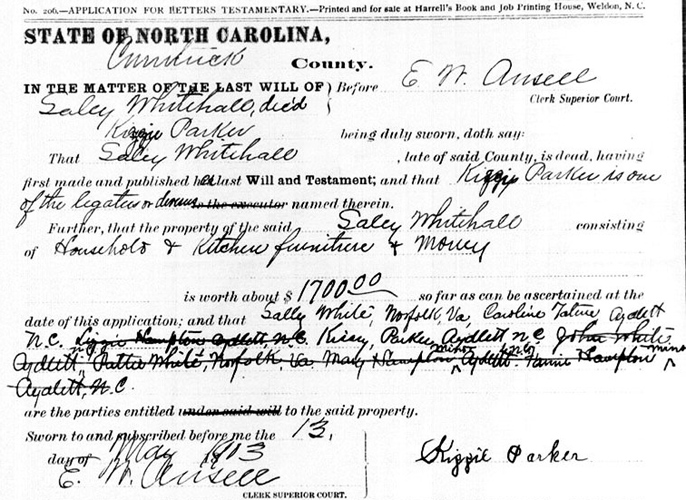 No. 206.—APPLICATION FOR LETTERS TESTAMENTARY.—Printed and for sale at Harrell's Book and Job Printing House, Weldon, N. C.
STATE OF NORTH CAROLINA,
Currituck County.
IN THE MATTER OF THE LAST WILL OF } Before E. W. Ansell
Clerk Superior Court.
Saley Whitehall, dec'd
Kizzie Parker being duly sworn, doth say:
That Saley Whitehall, late of said County, is dead, having
first made and published her last Will and Testament; and that Kizzie Parker is one
of the legatees or devisees is the executor named therein.
Further, that the property of the said Saley Whitehall consisting
of Household & Kitchen furniture & Money
is worth about $ 1700.00 so far as can be ascertained at the
date of this application; and that Sally White, Norfolk, Va, Caroline Aydlett
N.C. Lizzie Hampton Aydlett, N.C. Kissy, Parker, Aydlett N.C. John White
Aydlett, N.C. Pattie White, Norfolk Va. Mary Hampton minor Aydlett N.C. Fannie Hampton minor
Aydlett, N.C.
are the parties entitled under said will to the said property.
Sworn to and subscribed before me the 13,
day of May 1913 Kizzie Parker
E. W. Ansell
CLERK SUPERIOR COURT.